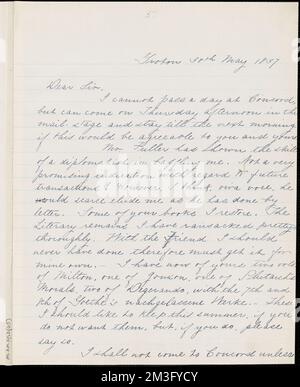 5
Groton 30th May 1837
Dear Sir,
I cannot pass a day at Concord,
but can come on Thursday afternoon in the
mail stage and stay till the next morning
if this would be agreeable to you and yours
Mr. Fuller has shown the skill
of a diplomatist in baffling me. Not a very
promising indication with regard to future
transactions! However I think, viva voce, he
would scarce elude me as he has done by
letter. Some of your books I restore. The
Literary remains I have ransacked pretty
thoroughly. With the Friend I should
never have done therefore must get it for
mine own. — I have now of yours two vols
of Milton, one of Jonson, one of Plutarch's
Morals, two of Degerando, with the 7th and
8th of Goethe's nachgelassene Werke. — These
I should like to keep this summer, if you
do not want them, but, if you do, please
say so.
I shall not come to Concord unless
alamy
Image ID: 2M3FYCY
www.alamy.com